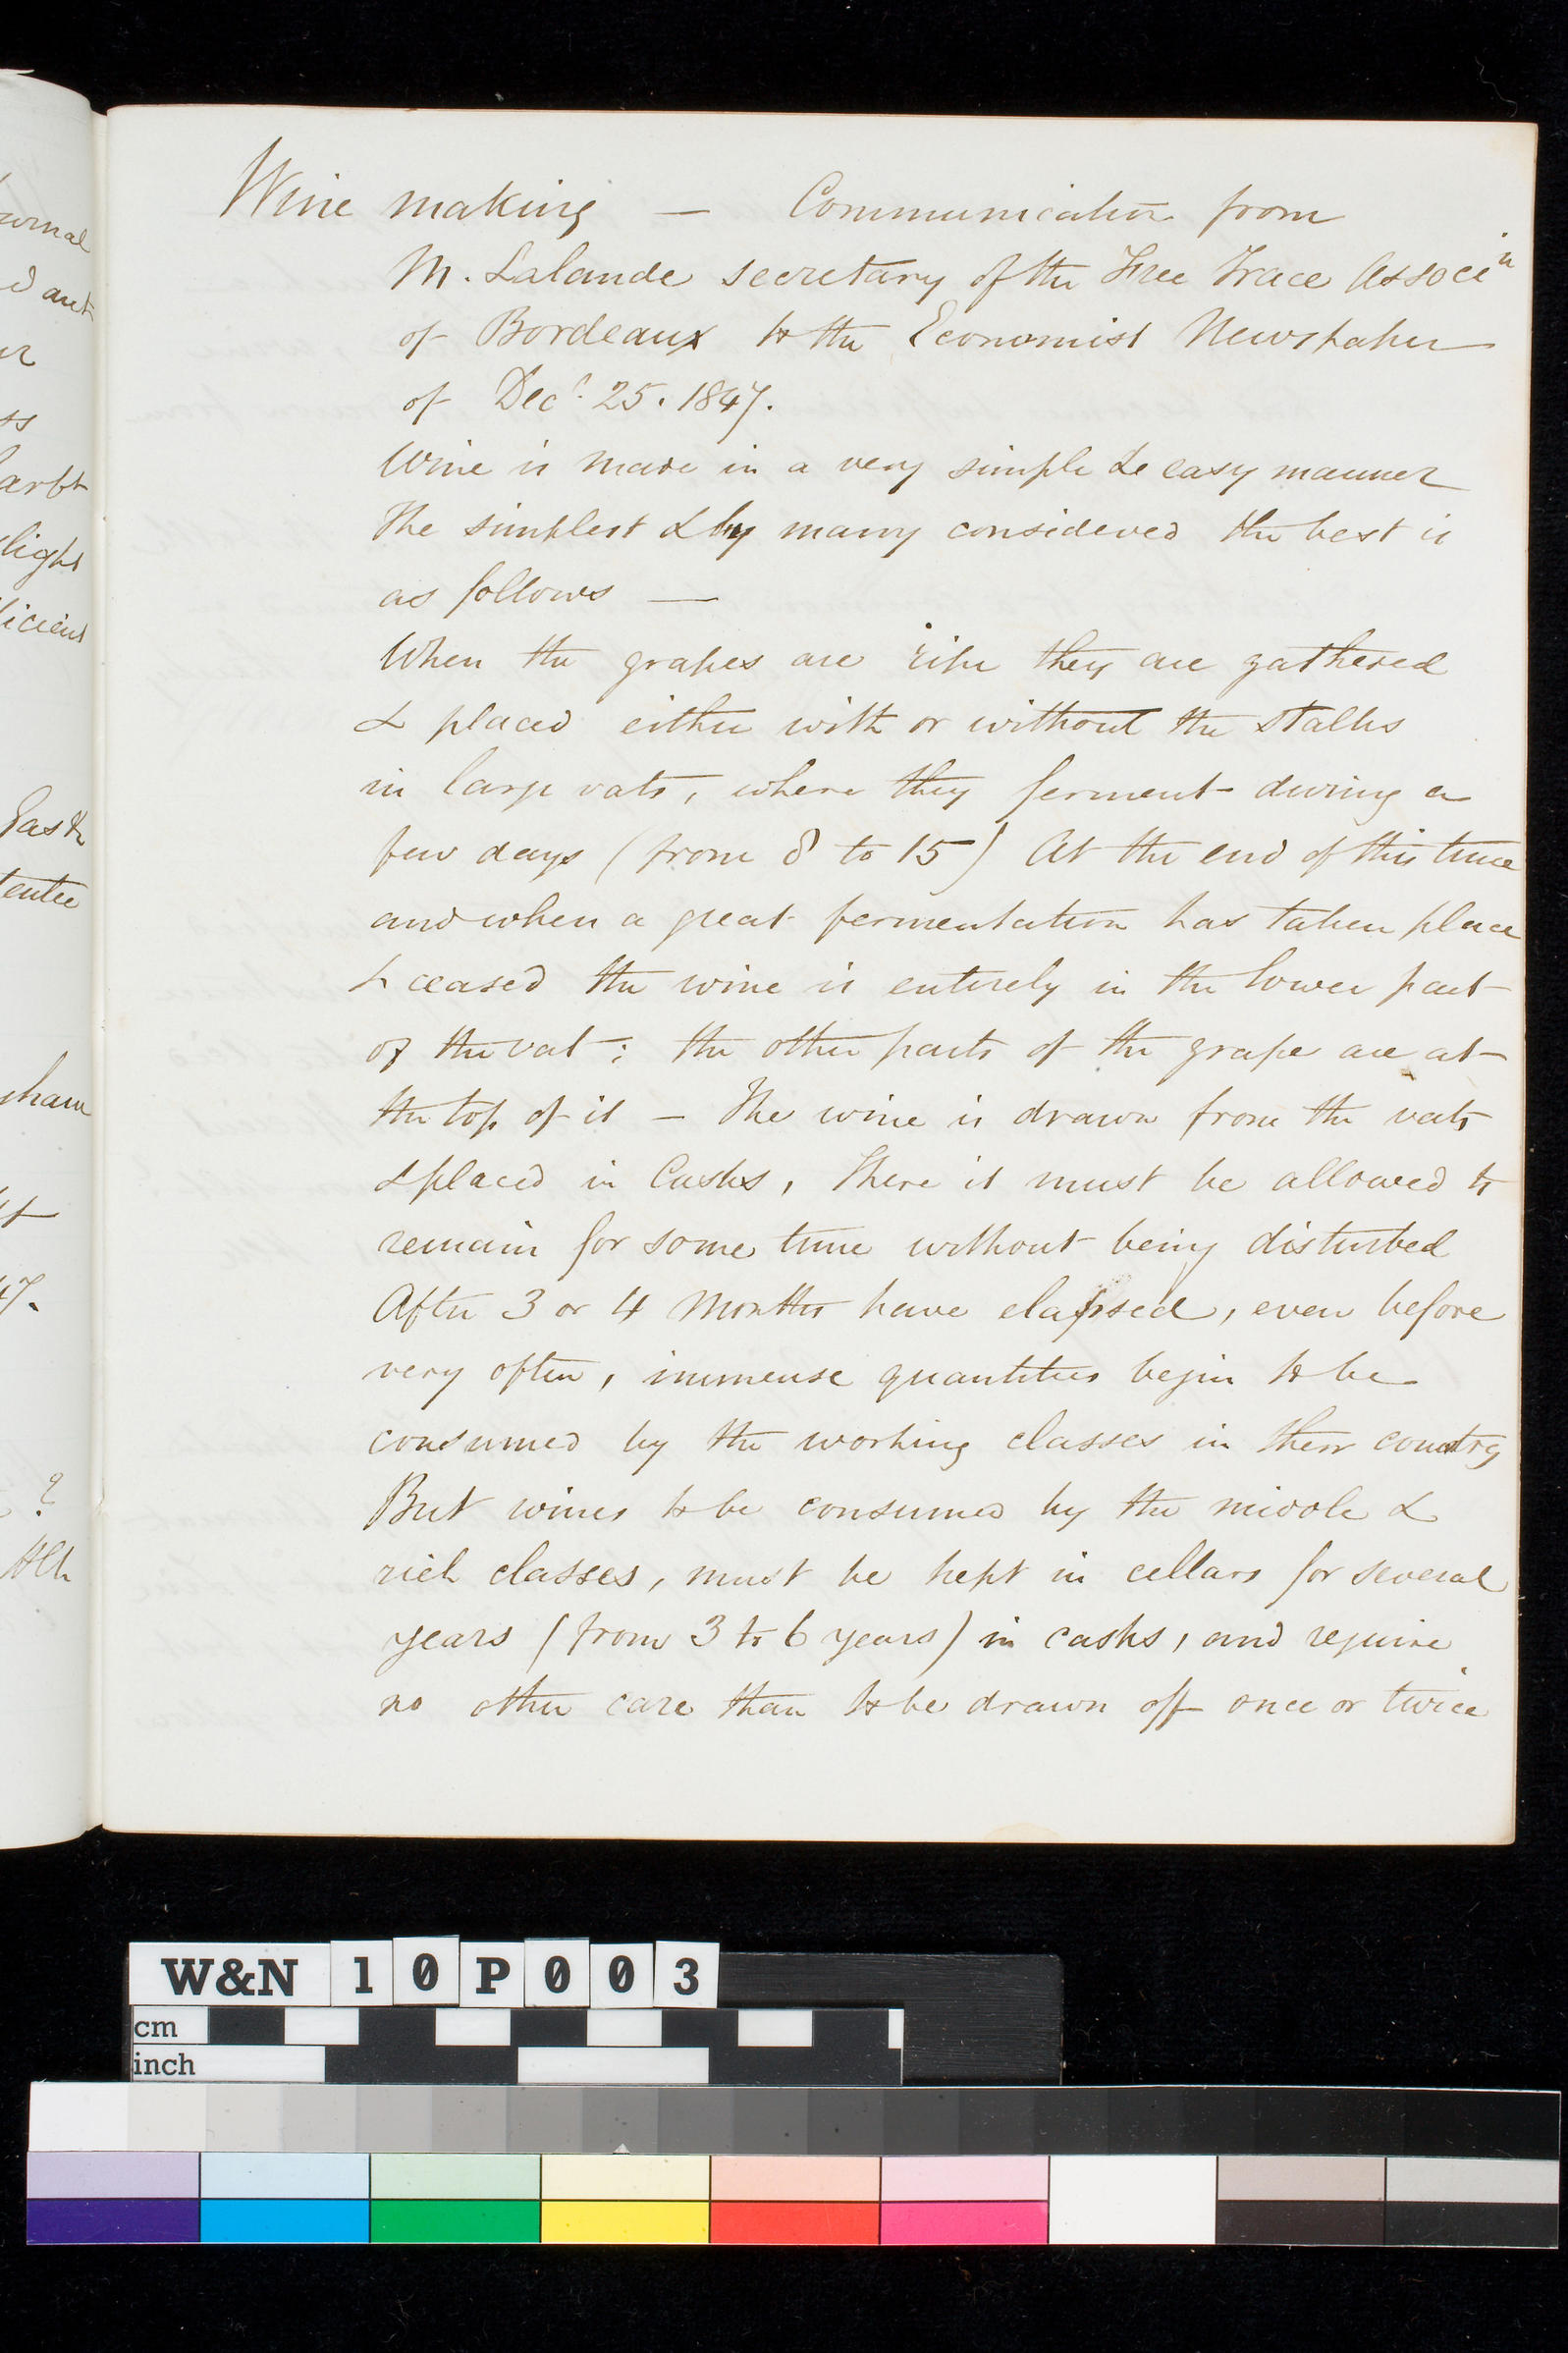 Wine making — Communication from
M. Lalande secretary of the Free Trade Associn
of Bordeaux to the Economist Newspaper
of Decr 25. 1847.
Wine is made in a very simple & easy manner
The simplest & by many considered the best is
as follows —
When the grapes are ripe they are gathered
& placed either with or without the stalks
in large vats, where they ferment during a
few days (from 8 to 15) At the end of this time
and when a great fermentation has taken place
& ceased the wine is entirely in the lower part
of the vat; the other parts of the grape are at
the top of it — The wine is drawn from the vats
& placed in Casks, There it must be allowed to
remain for some time without being disturbed
After 3 or 4 Months have elapsed, even before
very often, immense quantities begin to be
consumed by the working classes in their country
But wines to be consumed by the middle &
rich classes, must be kept in cellars for several
years (from 3 to 6 years) in casks, and require
no other care than to be drawn off once or twice
W&N 10P003
cm
inch